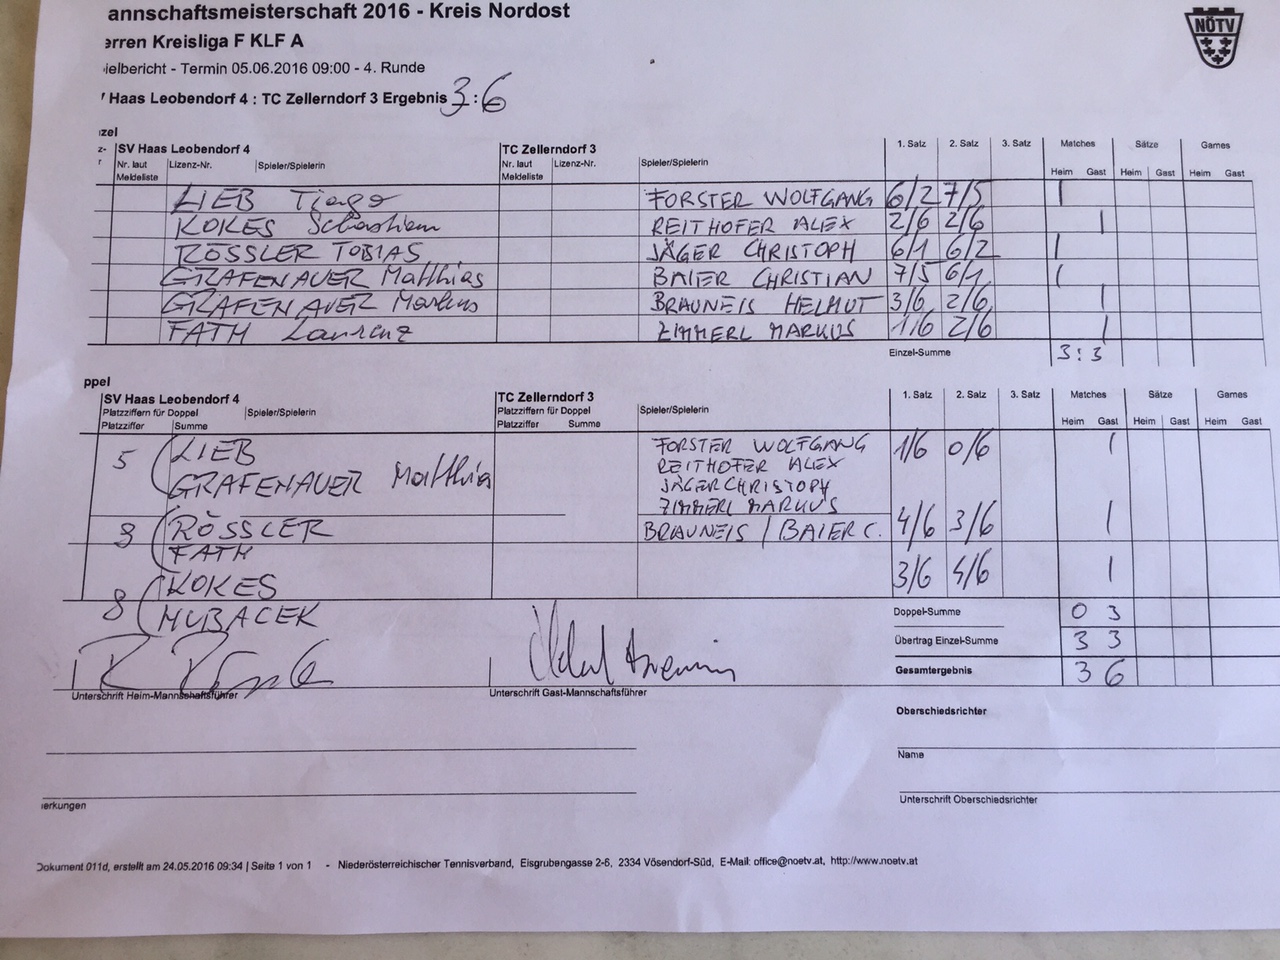 annschaftsmeisterschaft 2016 - Kreis Nordost
erren Kreisliga F KLF A
ielbericht - Termin 05.06.2016 09:00 - 4. Runde
Haas Leobendorf 4 : TC Zellerndorf 3 Ergebnis 3:6
NÖTV
zel
z- SV Haas Leobendorf 4 TC Zellerndorf 3 1. Satz 2. Satz 3. Satz Matches Sätze Games
r Nr. laut Meldeliste Lizenz-Nr. Spieler/Spielerin Nr. laut Meldeliste Lizenz-Nr. Spieler/Spielerin Heim Gast Heim Gast Heim Gast
LIEB Tiago FORSTER WOLFGANG 6/2 7/5 1
KOKES Sebastian REITHOFER ALEX 2/6 2/6 1
RÖSSLER TOBIAS JÄGER CHRISTOPH 6/1 6/2 1
GRAFENAUER Matthias BAIER CHRISTIAN 7/5 6/1 1
GRAFENAUER Markus BRAUNEIS HELMUT 3/6 2/6 1
FATH Laurenz ZIMMERL MARKUS 1/6 2/6 1
Einzel-Summe 3:3
ppel
SV Haas Leobendorf 4 TC Zellerndorf 3 1. Satz 2. Satz 3. Satz Matches Sätze Games
Platzziffern für Doppel Spieler/Spielerin Platzziffern für Doppel Spieler/Spielerin
Platzziffer Summe Platzziffer Summe Heim Gast Heim Gast Heim Gast
5 LIEB FORSTER WOLFGANG 1/6 0/6 1
REITHOFER ALEX
GRAFENAUER Matthias JÄGER CHRISTOPH
ZIMMERL MARKUS
RÖSSLER BRAUNEIS / BAIER C. 4/6 3/6 1
FATH
KOKES 3/6 4/6 1
8 HUBACEK
Doppel-Summe 0 3
Übertrag Einzel-Summe 3 3
Gesamtergebnis 3 6
Unterschrift Heim-Mannschaftsführer Unterschrift Gast-Mannschaftsführer
Oberschiedsrichter
Name
Unterschrift Oberschiedsrichter
erkungen
Dokument 011d, erstellt am 24.05.2016 09:34 | Seite 1 von 1 - Niederösterreichischer Tennisverband, Eisgrubengasse 2-6, 2334 Vösendorf-Süd, E-Mail: office@noetv.at, http://www.noetv.at